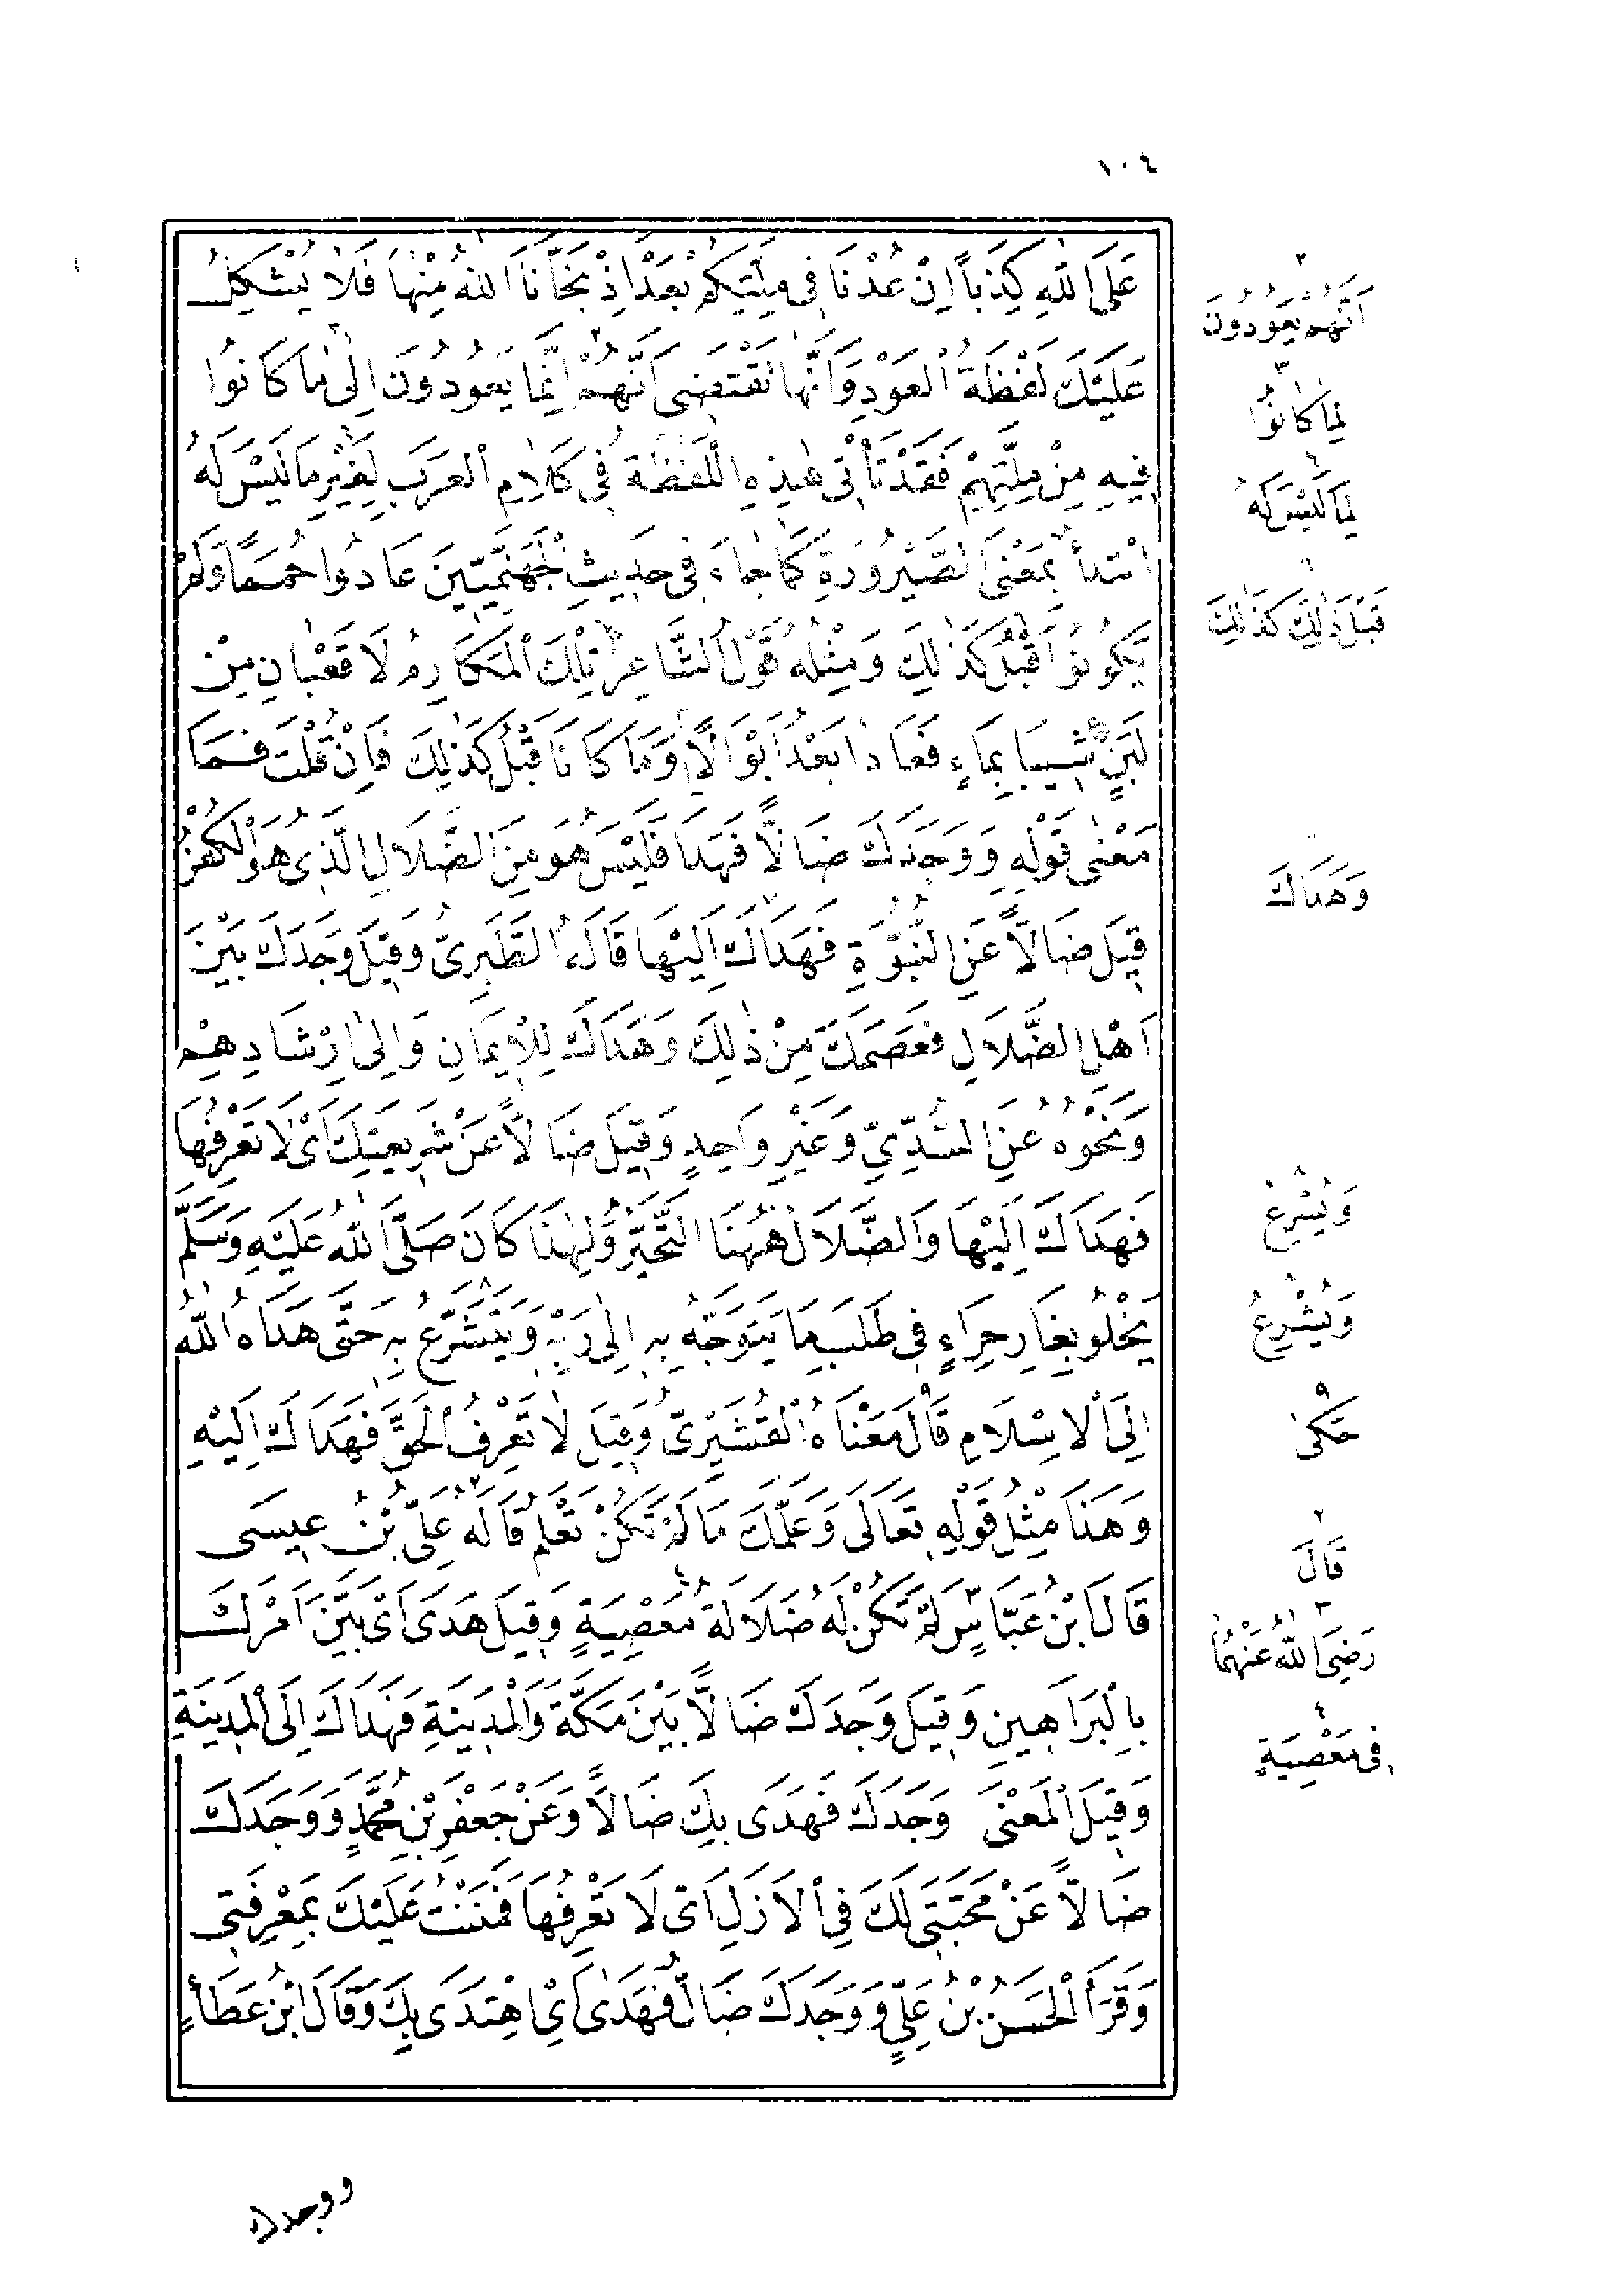 ١٠٤
عَلَى اللهِ كَذِبًا اِنْ عُدْنَا فِى مِلَّتِكُمْ بَعْدَ اِذْ نَجَّانَا اللهُ مِنْهَا فَلَا يُشْكِلُ
عَلَيْكَ لَفْظَةُ الْعَوْدِ وَاَنَّهَا تَقْتَضِى اَنَّهُمْ اِنَّمَا يَعُودُونَ اِلٰى مَا كَانُوا
فِيهِ مِنْ مِلَّتِهِمْ فَقَدْ تَأْتِى هٰذِهِ اللَّفْظَةُ فِى كَلَامِ الْعَرَبِ لِغَيْرِ مَا لَيْسَ لَهُ
ابْتِدَاءٌ بِمَعْنَى الصَّيْرُورَةِ كَمَا جَاءَ فِى حَدِيثِ الْجَهَنَّمِيِّينَ عَادُوا حُمَمًا وَلَمْ
يَكُونُوا قَبْلُ كَذٰلِكَ وَمِثْلُهُ قَوْلُ الشَّاعِرِ تِلْكَ الْمَكَارِمُ لَا قَعْبَانِ مِنْ
لَبَنٍ شِيبَا بِمَاءٍ فَعَادَا بَعْدُ اَبْوَالًا وَمَا كَانَا قَبْلُ كَذٰلِكَ فَاِنْ قُلْتَ فَمَا
مَعْنٰى قَوْلِهِ وَوَجَدَكَ ضَالًّا فَهَدَا فَلَيْسَ هُوَ مِنَ الضَّلَالِ الَّذِى هُوَ الْكُفْرُ
قِيلَ ضَالًّا عَنِ النُّبُوَّةِ فَهَدَاكَ اِلَيْهَا قَالَهُ الطَّبَرِىُّ وَقِيلَ وَجَدَكَ بَيْنَ
اَهْلِ الضَّلَالِ فَعَصَمَكَ مِنْ ذٰلِكَ وَهَدَاكَ لِلْاِيمَانِ وَاِلٰى اِرْشَادِهِمْ
وَنَحْوُهُ عَنِ السُّدِّىِّ وَغَيْرِ وَاحِدٍ وَقِيلَ ضَالًّا عَنْ شَرِيعَتِكَ اَىْ لَا تَعْرِفُهَا
فَهَدَاكَ اِلَيْهَا وَالضَّلَالُ هٰهُنَا التَّحَيُّرُ وَلِهٰذَا كَانَ صَلَّى اللهُ عَلَيْهِ وَسَلَّمَ
يَخْلُو بِغَارِ حِرَاءٍ فِى طَلَبِ مَا يَتَوَجَّهُ بِهِ اِلٰى رَبِّهِ وَيَتَشَرَّعُ بِهِ حَتَّى هَدَاهُ اللهُ
اِلَى الْاِسْلَامِ قَالَ مَعْنَاهُ الْقُشَيْرِىُّ وَقِيلَ لَا تَعْرِفُ الْحَقَّ فَهَدَاكَ اِلَيْهِ
وَهٰذَا مِثْلُ قَوْلِهِ تَعَالَى وَعَلَّمَكَ مَا لَمْ تَكُنْ تَعْلَمُ قَالَهُ عَلِىُّ بْنُ عِيسَى
قَالَ ابْنُ عَبَّاسٍ لَمْ تَكُنْ لَهُ ضَلَالَةُ مَعْصِيَةٍ وَقِيلَ هَدَى اَىْ بَيَّنَ اَمْرَكَ
بِالْبَرَاهِينِ وَقِيلَ وَجَدَكَ ضَالًّا بَيْنَ مَكَّةَ وَالْمَدِينَةِ فَهَدَاكَ اِلَى الْمَدِينَةِ
وَقِيلَ الْمَعْنَى وَجَدَكَ فَهَدَى بِكَ ضَالًّا وَعَنْ جَعْفَرِ بْنِ مُحَمَّدٍ وَوَجَدَكَ
ضَالًّا عَنْ مَحَبَّتِى لَكَ فِى الْاَزَلِ اَىْ لَا تَعْرِفُهَا فَمَنَنْتُ عَلَيْكَ بِمَعْرِفَتِى
وَقَرَأَ الْحَسَنُ بْنُ عَلِيٍّ وَوَجَدَكَ ضَالٌّ فَهَدَى اَىْ اهْتَدَى بِكَ وَقَالَ ابْنُ عَطَاءٍ
ووجدك
٢
اَنَّهُمْ يَعُودُونَ
٣
لِمَا كَانُوا
٤
لِمَا لَيْسَ لَهُ
٦
قَبْلَ ذٰلِكَ كَذٰلِكَ
وَهَدَاكَ
٨
وَيُشْرِعُ
٨
وَيُشْرِعُ
٩
حَكَى
٢
قَالَ
٣
رَضِىَ اللهُ عَنْهُمَا
٤
فِى مَعْصِيَةٍ